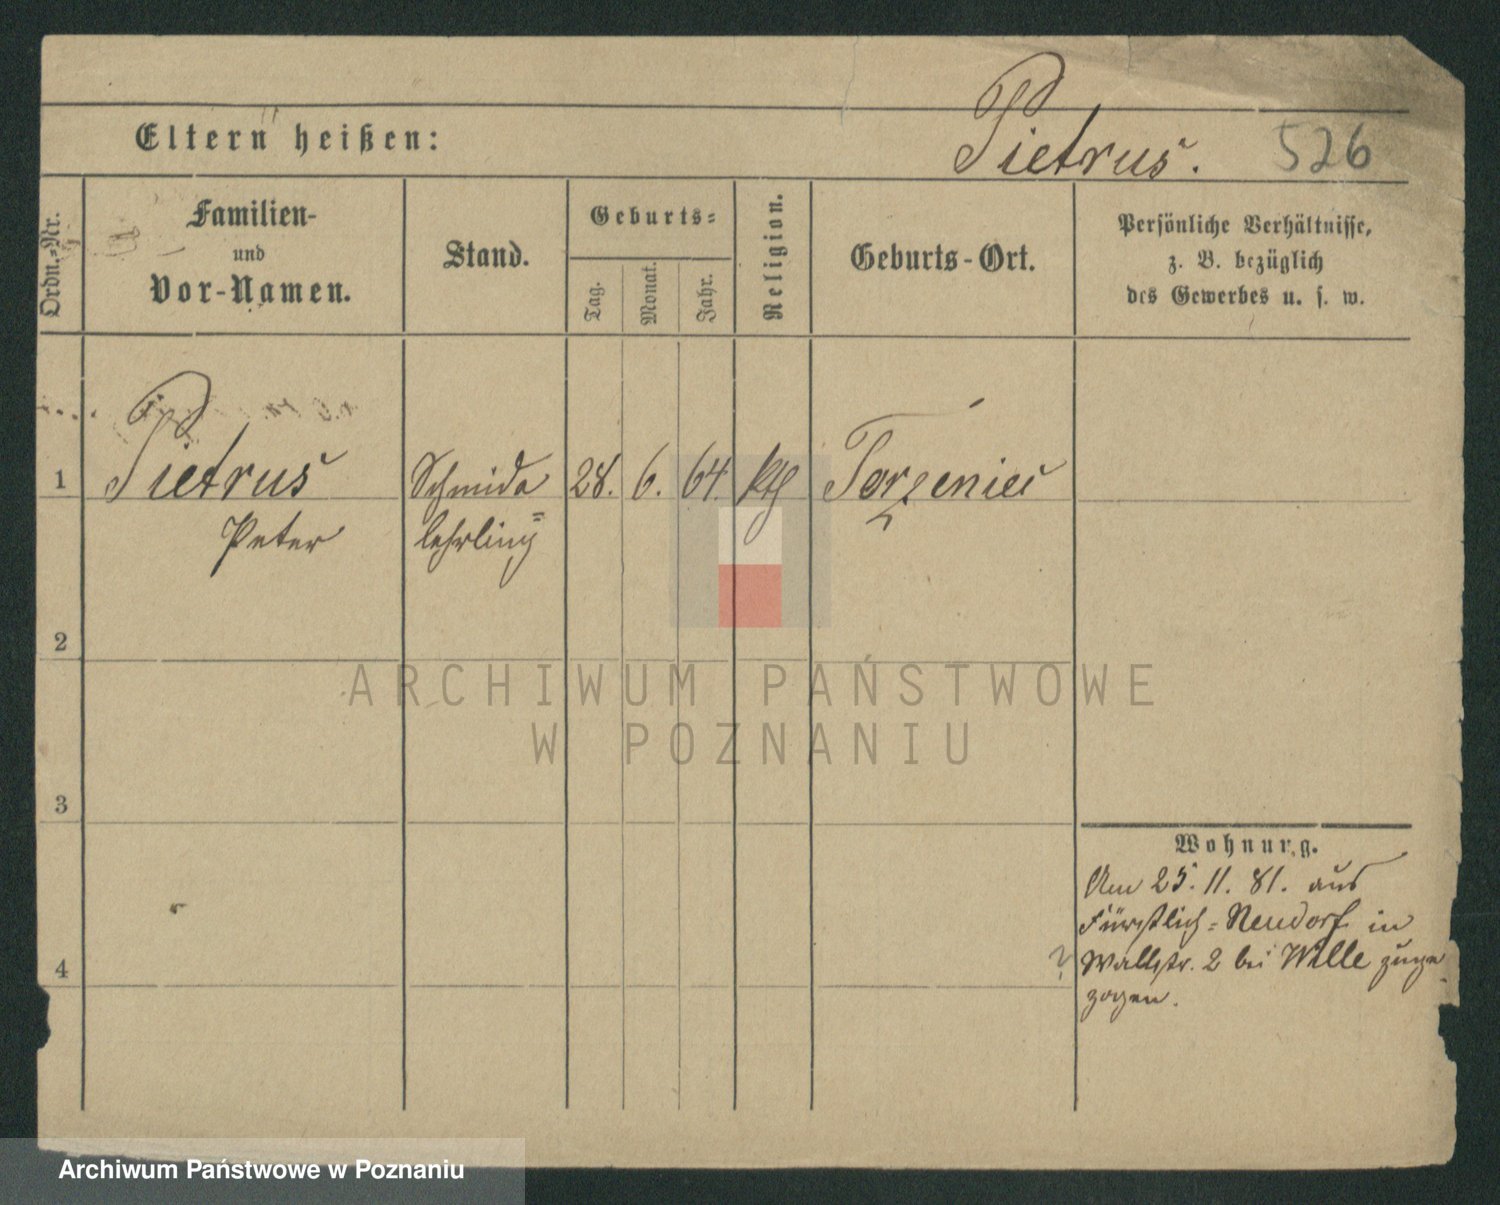 Pietrus. 526
Eltern heißen:
Ordn.-Nr.
Familien-
und
Vor-Namen.
Stand.
Geburts-
Tag.
Monat.
Jahr.
Religion.
Geburts-Ort.
Persönliche Verhältnisse,
z. B. bezüglich
des Gewerbes u. s. w.
1 Pietrus Schmide 28. 6. 64. kth
Peter lehrling
2
ARCHIWUM PAŃSTWOWE
W POZNANIU
3
Wohnung.
Am 25. 11. 81. aus
Fürstlich-Neudorf in
4 ? Wallstr. 2 bei Wille zuge
zogen.
Archiwum Państwowe w Poznaniu